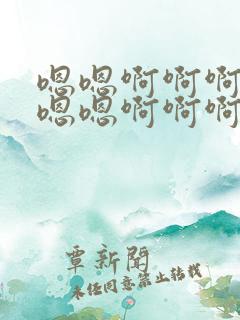 嗯嗯啊啊啊
嗯嗯啊啊啊
覃新闻
未经同意禁止转载